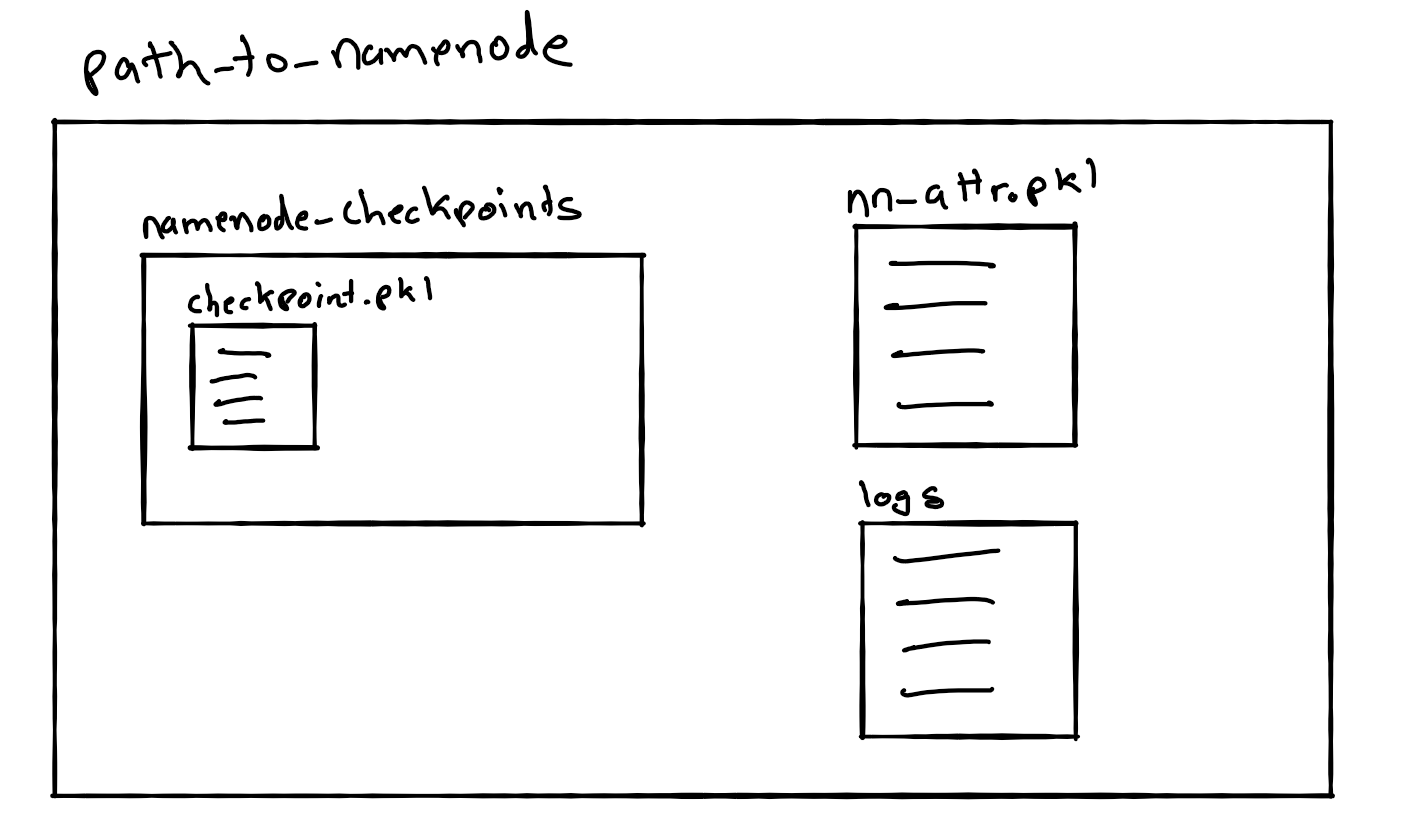 path_to_namenode
namenode_checkpoints
checkpoint.pkl
nn_attr.pkl
logs